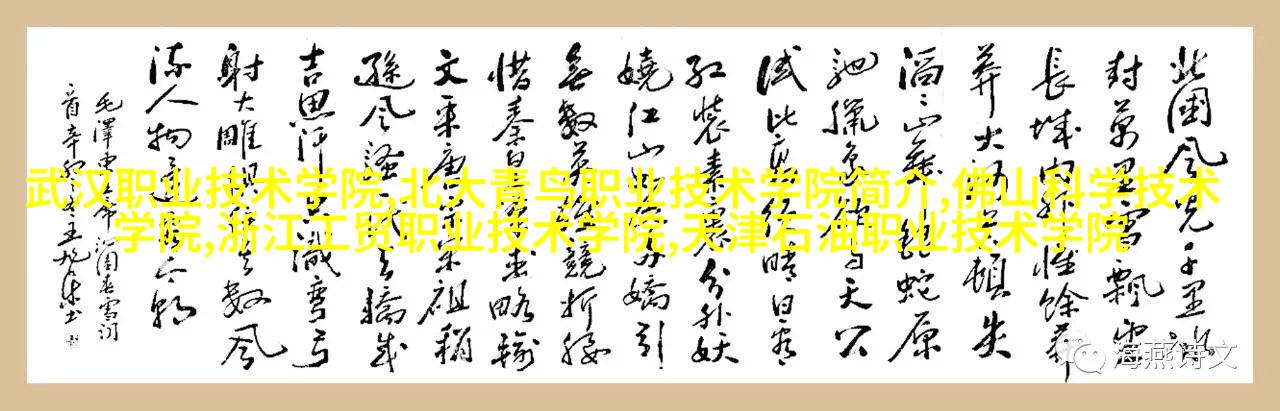 武汉职业技术学院,北大青鸟职业技术学院简介,佛山科学技术
学院,浙江工贸职业技术学院,天津石油职业技术学院
北國风光千里冰
封萬里雪飘望
長城内外惟餘莽
莽大河上下顿失
滔滔山舞银蛇原
驰蠟象欲与天公
试比高须晴日看
红装素裹分外妖
娆江山如此多嬌引
無数英雄競折腰
惜秦皇漢武略输
文采唐宗宋祖稍
遜风骚一代天驕成
吉思汗只識彎弓
射大雕俱往矣数风
流人物还看今朝
毛澤東 沁園春雪词
海燕诗文